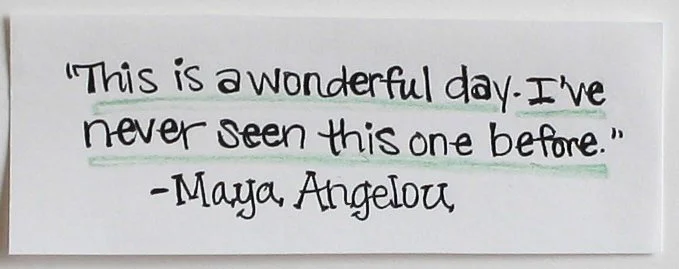 "This is a wonderful day. I've
never seen this one before."
-Maya Angelou